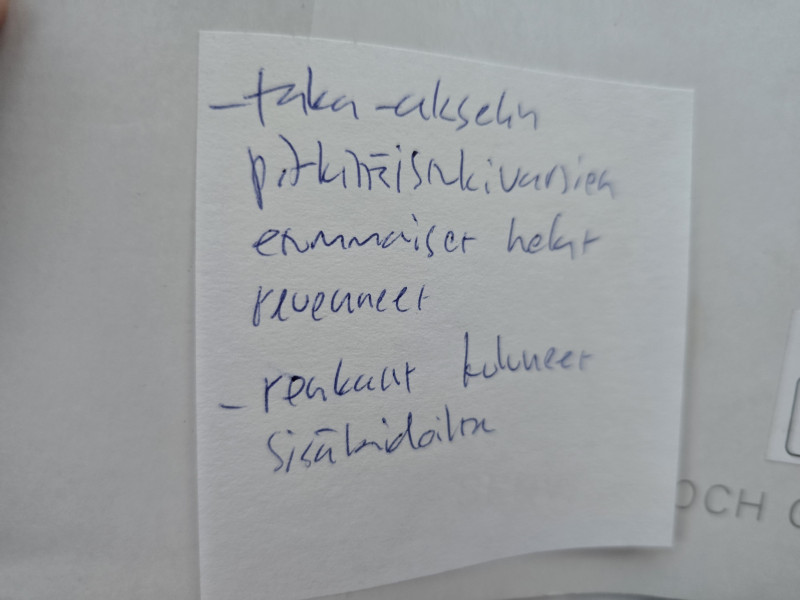 - taka-akselin
pitkittäistukivarsien
etummaiset helat
revenneet
- renkaat kuluneet
sisäreidoilta
OCH